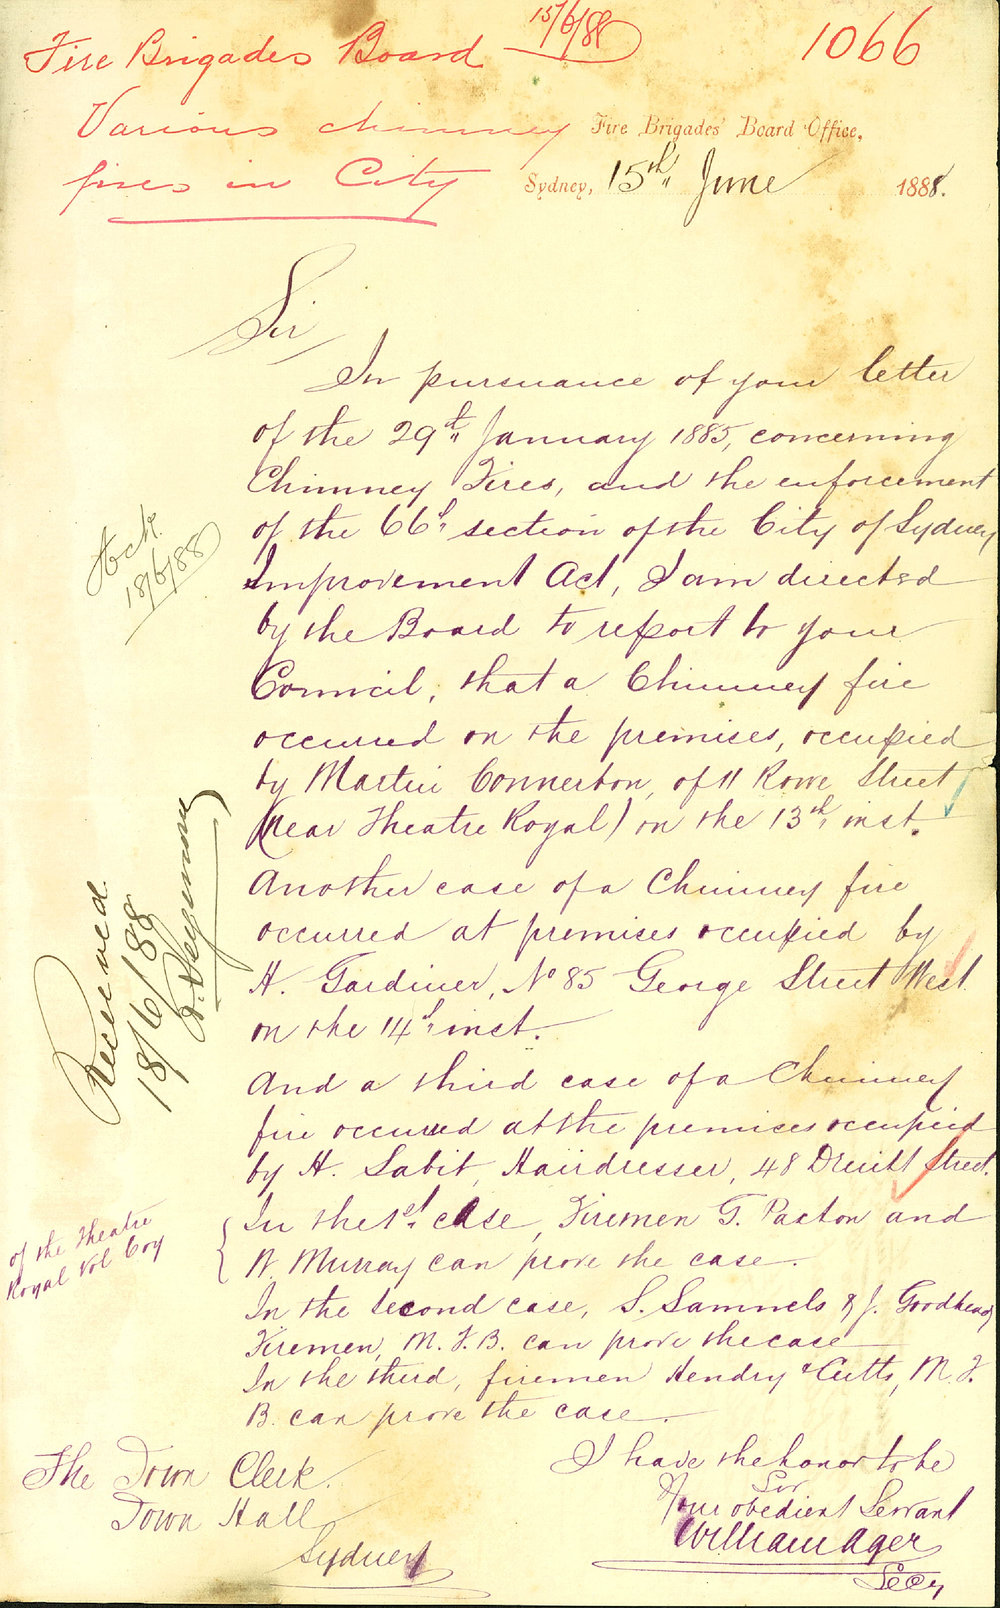 15/6/88
1066
Fire Brigades Board
Various chimney
fires in City
Fire Brigades' Board Office,
Sydney, 15th June 1888.
Sir
In pursuance of your letter
of the 29th January 1885, concerning
Chimney Fires, and the enforcement
of the 66th section of the City of Sydney
Improvement Act, I am directed
by the Board to report to your
Council, that a Chimney fire
occurred on the premises, occupied
by Martin Connerton, of 11 Rowe Street
(Near Theatre Royal) on the 13th inst.
Another case of a Chimney fire
occurred at premises occupied by
H. Gardiner, No 85 George Street West
on the 14th inst.
And a third case of a Chimney
fire occurred at the premises occupied
by H. Sabit, Hairdresser, 48 Druitt Street.
In the 1st case, Firemen G. Paxton and
W. Murray can prove the case.
In the second case, S. Samuels & J. Goodhead
Firemen, M. F. B. can prove the case
In the third, firemen Hendry & Cutts, M. F.
B. can prove the case.
I have the honor to be
Sir
Your obedient Servant
William Ager
Secy
The Town Clerk.
Town Hall
Sydney
Ack.
18/6/88
Received
18/6/88
of the Theatre
Royal Vol Coy